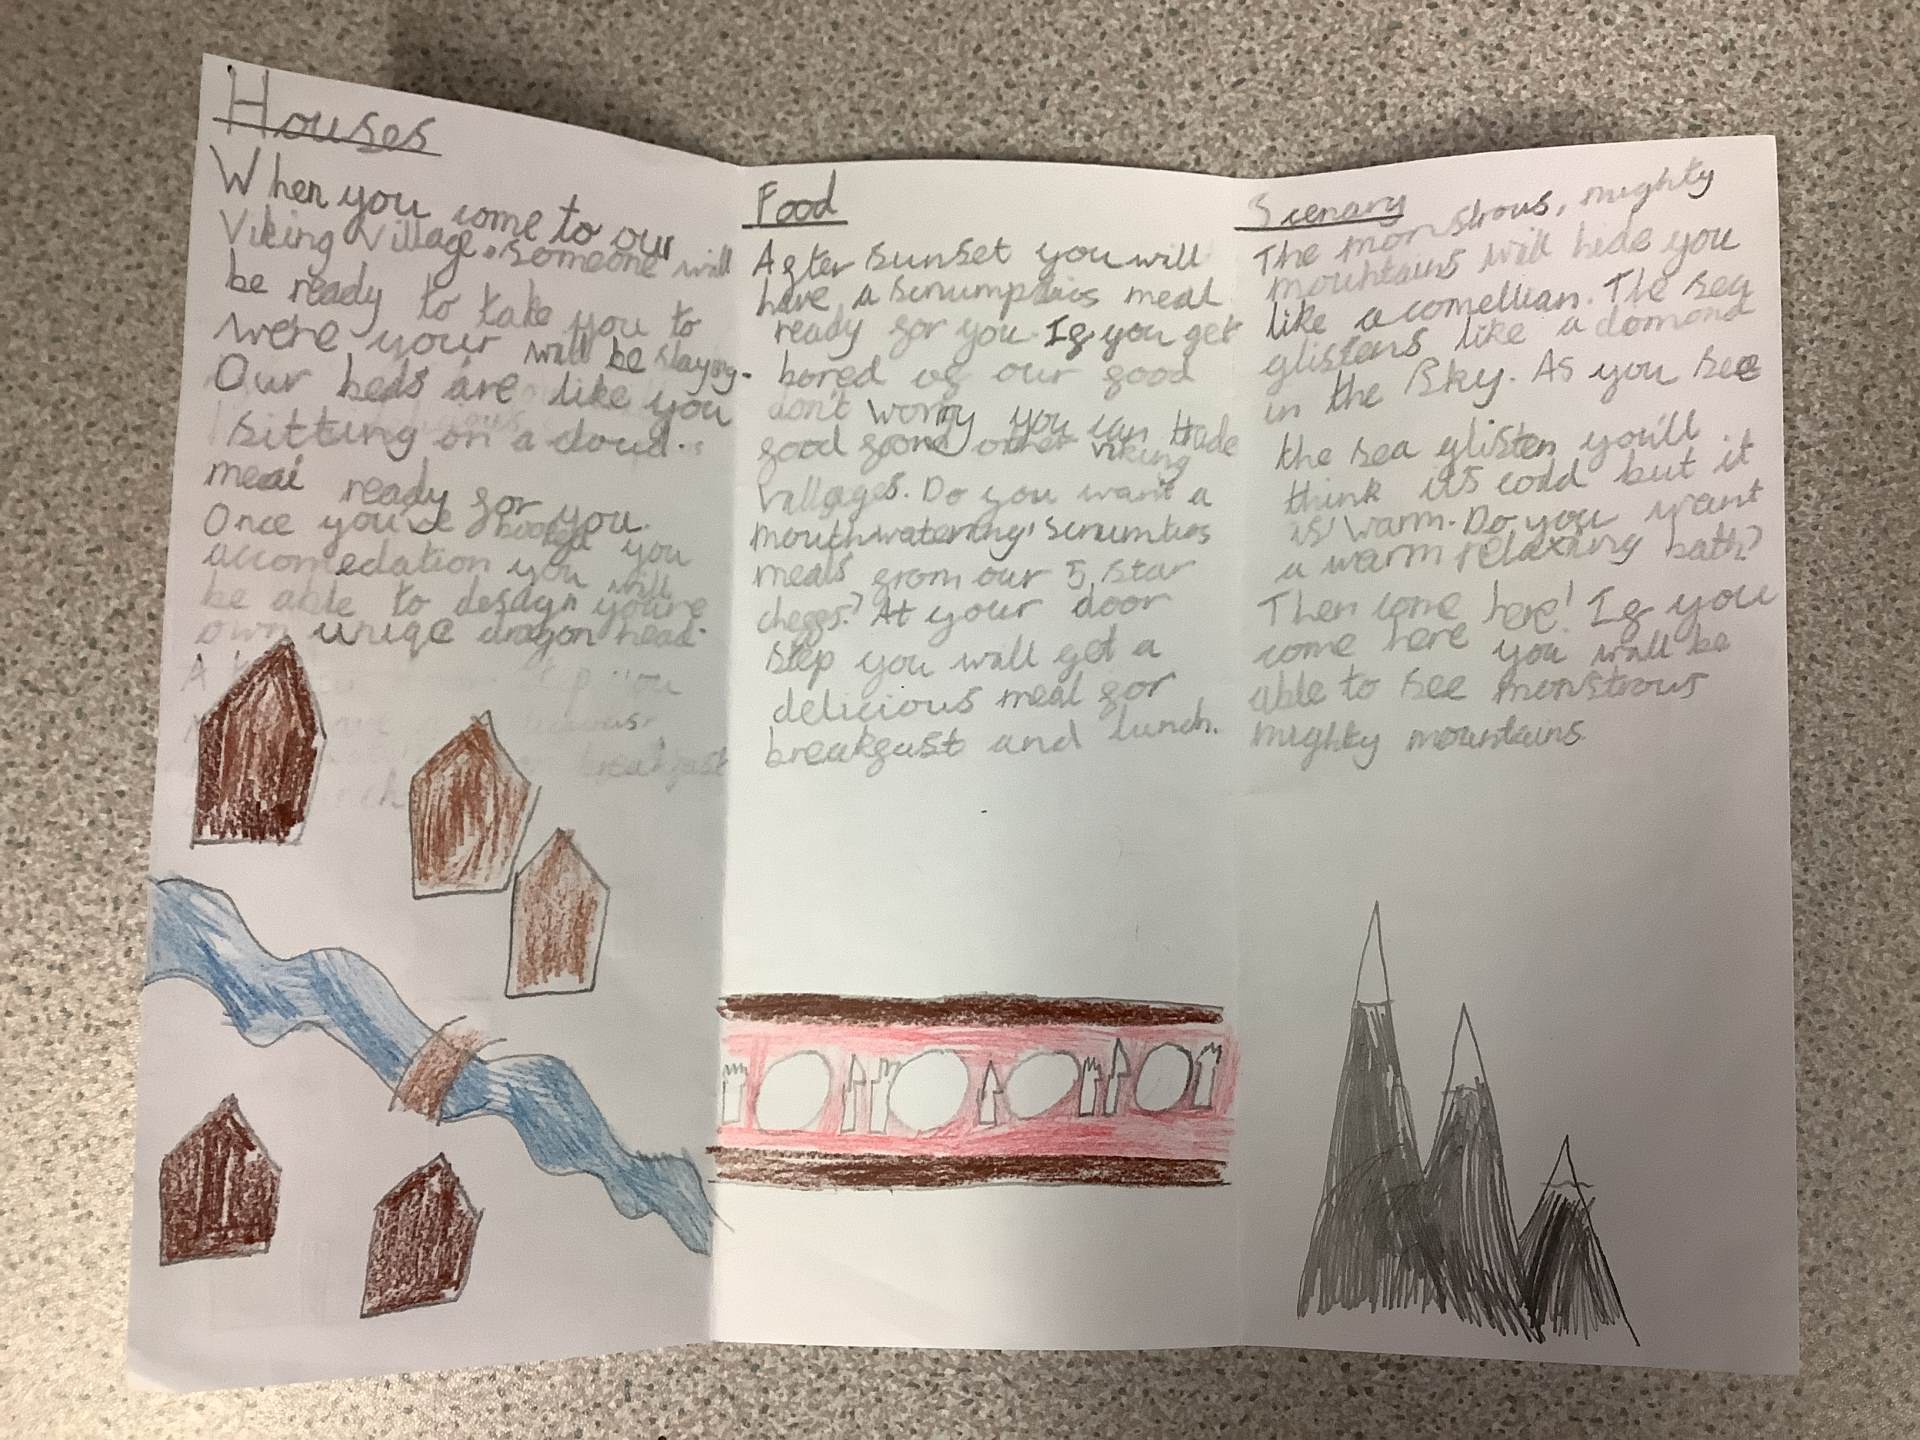 Houses
When you come to our
Viking Village. Someone will
be ready to take you to
were your will be staying.
Our beds are like you
sitting on a cloud.
meal ready for you.
Once you've booked you
accomedation you will
be able to design youre
own uniqe dragon head.
Food
After sunset you will
have a scrumptios meal
ready for you. If you get
bored of our food
don't worry you can trade
food from other viking
villages. Do you want a
mouthwatering, scrumtios
meals from our 5 star
chefs? At your door
step you will get a
delicious meal for
breakfast and lunch.
Scenary
The monstrous, mighty
mountains will hide you
like a comellian. The sea
glistens like a domond
in the sky. As you see
the sea glisten you'll
think its cold but it
is warm. Do you want
a warm relaxing bath?
Then come here! If you
come here you will be
able to see monstrous
mighty mountains